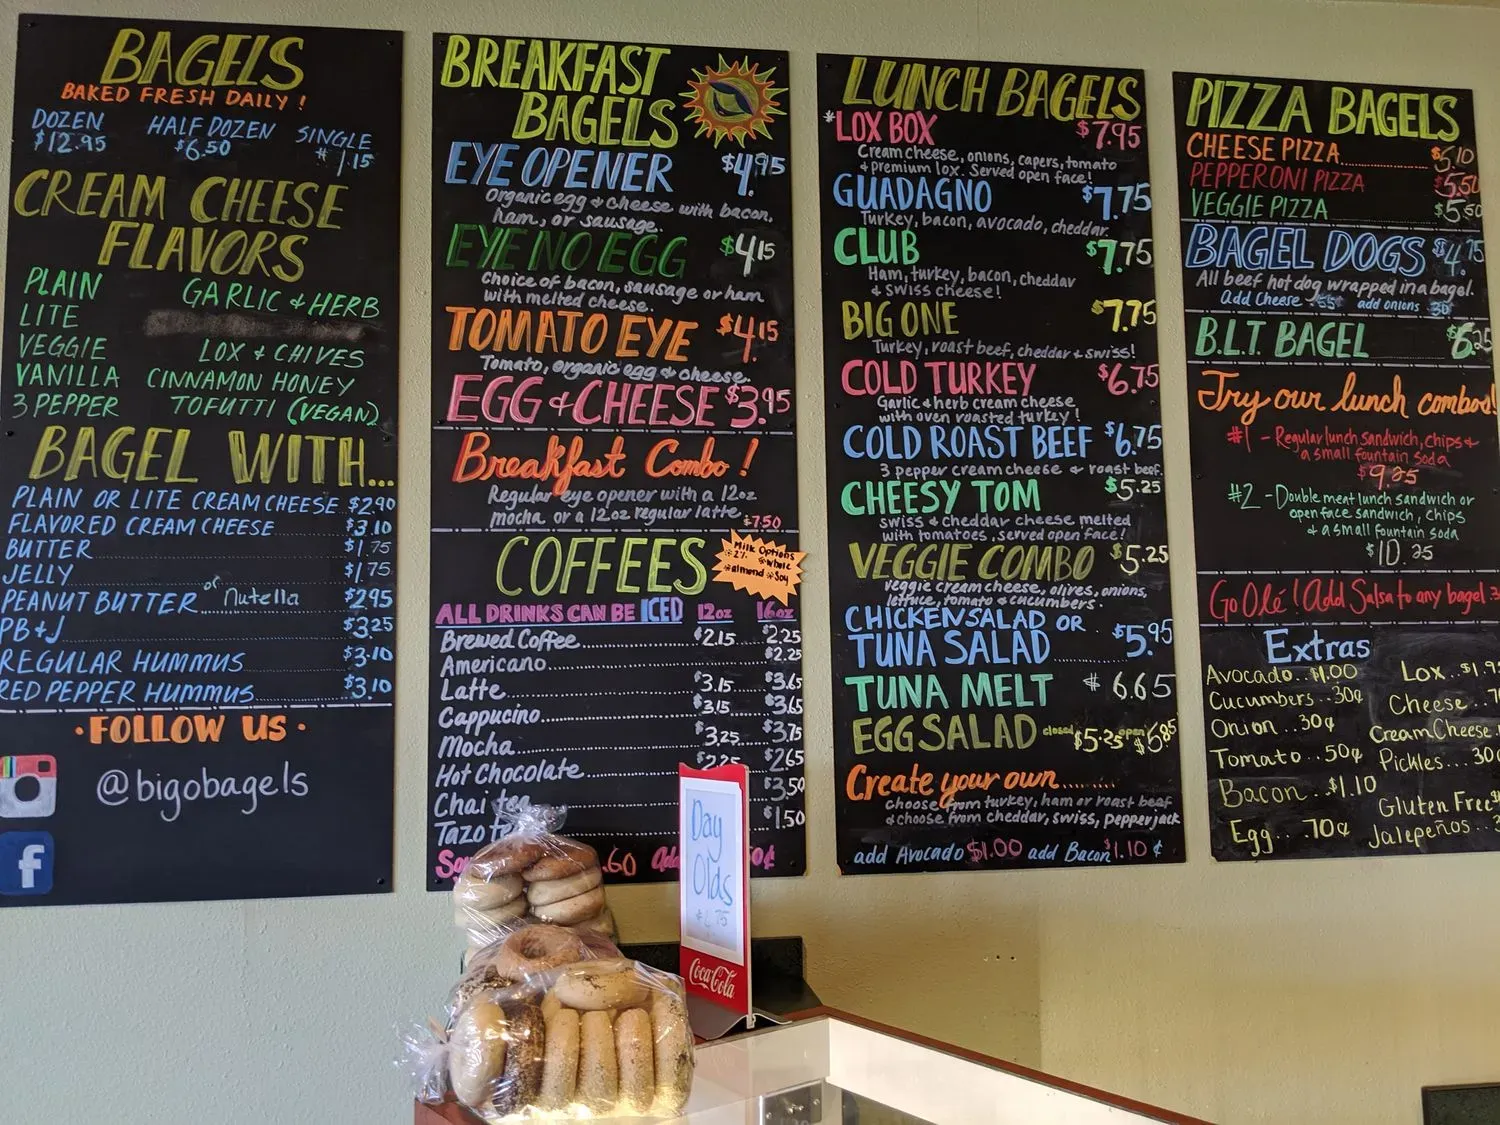 BAGELS
BAKED FRESH DAILY!
DOZEN HALF DOZEN SINGLE
$12.95 $6.50 $1.15
CREAM CHEESE
FLAVORS
PLAIN GARLIC & HERB
LITE
VEGGIE LOX & CHIVES
VANILLA CINNAMON HONEY
3 PEPPER TOFUTTI (VEGAN)
BAGEL WITH...
PLAIN OR LITE CREAM CHEESE $2.90
FLAVORED CREAM CHEESE $3.10
BUTTER $1.75
JELLY $1.75
PEANUT BUTTER or nutella $2.95
PB&J $3.25
REGULAR HUMMUS $3.10
RED PEPPER HUMMUS $3.10
· FOLLOW US ·
@bigobagels
f
BREAKFAST
BAGELS
EYE OPENER $4.95
Organic egg & cheese with bacon,
ham, or sausage.
EYE NO EGG $4.15
Choice of bacon, sausage or ham
with melted cheese.
TOMATO EYE $4.15
Tomato, organic egg & cheese.
EGG & CHEESE $3.95
Breakfast Combo!
Regular eye opener with a 12oz
mocha or a 12oz regular latte
$7.50
COFFEES
Milk Options
*2% *whole
*almond *Soy
ALL DRINKS CAN BE ICED 12oz 16oz
Brewed Coffee $2.15 $2.25
Americano $2.25
Latte $3.15 $3.65
Cappucino $3.15 $3.65
Mocha $3.25 $3.75
Hot Chocolate $2.25 $2.65
Chai tea $3.50
Tazo $1.50
.60
Day
Olds
Coca-Cola
LUNCH BAGELS
*LOX BOX $7.95
Cream cheese, onions, capers, tomato
& premium lox. Served open face!
GUADAGNO $7.75
Turkey, bacon, avocado, cheddar.
CLUB $7.75
Ham, turkey, bacon, cheddar
& swiss cheese!
BIG ONE $7.75
Turkey, roast beef, cheddar & swiss!
COLD TURKEY $6.75
Garlic & herb cream cheese
with oven roasted turkey!
COLD ROAST BEEF $6.75
3 pepper cream cheese & roast beef.
CHEESY TOM $5.25
swiss & cheddar cheese melted
with tomatoes, served open face!
VEGGIE COMBO $5.25
veggie cream cheese, olives, onions,
lettuce, tomato & cucumbers.
CHICKEN SALAD OR
TUNA SALAD $5.95
TUNA MELT $6.65
EGG SALAD closed $5.25 open $6.85
Create your own........
choose from turkey, ham or roast beef
& choose from cheddar, swiss, pepperjack
add Avocado $1.00 add Bacon $1.10 ¢
PIZZA BAGELS
CHEESE PIZZA $5.10
PEPPERONI PIZZA $5.50
VEGGIE PIZZA $5.50
BAGEL DOGS $4.75
All beef hot dog wrapped in a bagel.
Add Cheese add onions 30
B.L.T. BAGEL $6.25
Try our lunch combos!
#1 - Regular lunch sandwich, chips &
a small fountain soda
$9.25
#2 - Double meat lunch sandwich or
open face sandwich, chips
& a small fountain soda
$10.25
Go Olé! Add Salsa to any bagel
Extras
Avocado.. $1.00 Lox..
Cucumbers.. 30¢ Cheese..
Onion.. 30¢ Cream Cheese
Tomato.. 50¢ Pickles... 30
Bacon.. $1.10 Gluten Free
Egg... 70¢ Jalepeños..